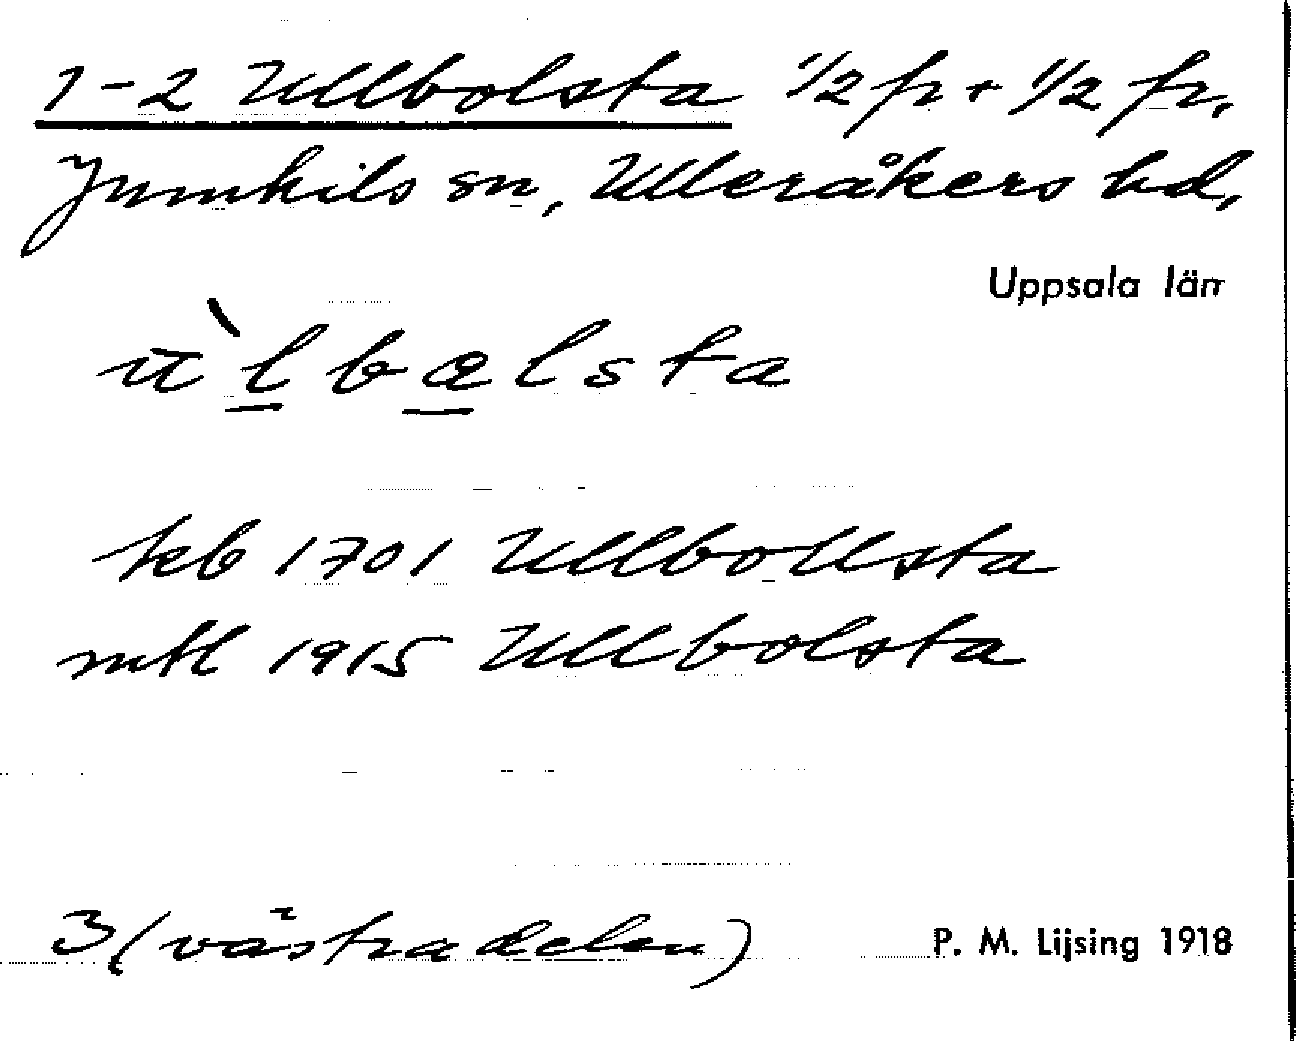 1-2 Ullbolsta 1/2 fr + 1/2 fr,
Jumkils sn, Ulleråkers hd,
Uppsala län
ùlbœlsta
kb 1701 Ullbollsta
mtl 1915 Ullbolsta
3 (västra delen)
P. M. Lijsing 1918